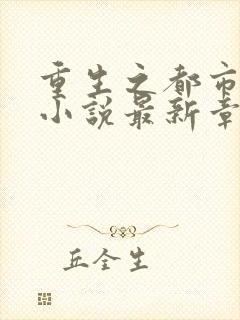 重生之都市
小说最新章
丘全生